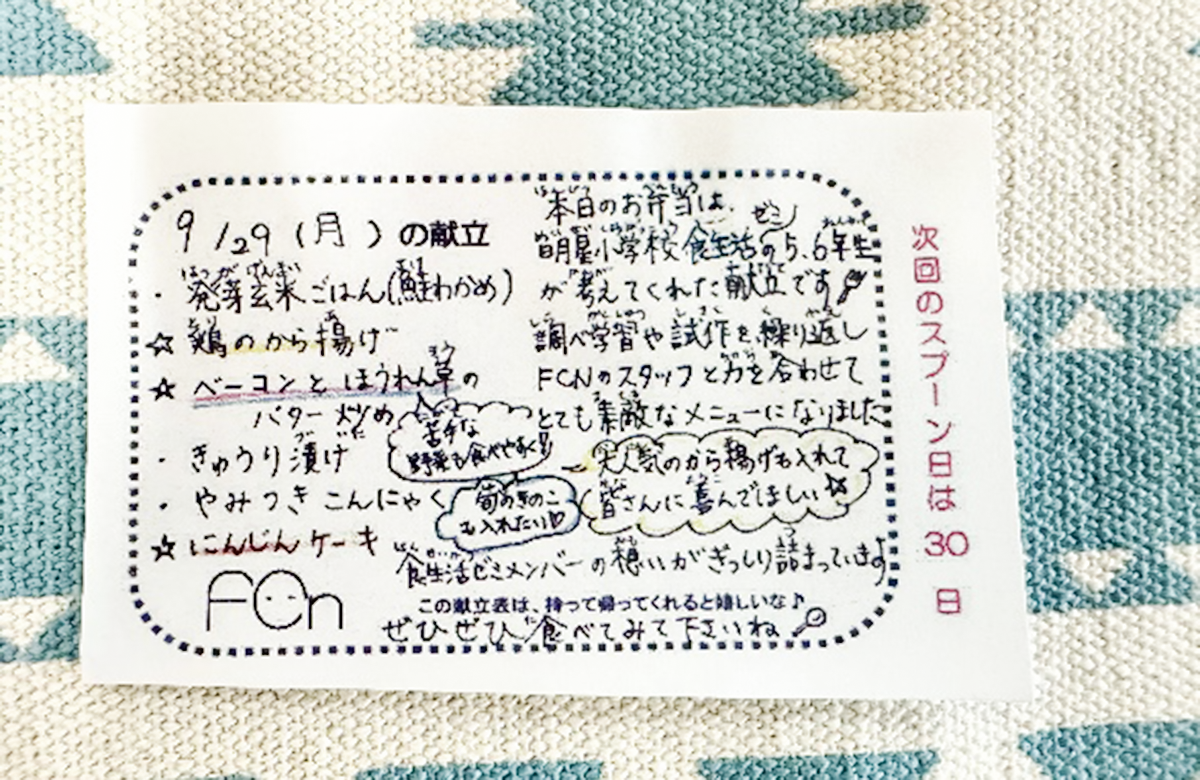 9/29(月)の献立
・発芽玄米ごはん(鮭わかめ)
☆鶏のから揚げ
☆ベーコンとほうれん草の
バター炒め
・きゅうり漬け
・やみつきこんにゃく
☆にんじんケーキ
FCn
本日のお弁当は、
明星小学校食生活ゼミの5、6年生
が考えてくれた献立です
調べ学習や試作を繰り返し
FCNのスタッフと力を合わせて
とても素敵なメニューになりました
苦手な
野菜も食べやすく!!
旬のきのこ
も入れたい♡
大人気のから揚げも入れて
皆さんに喜んでほしい☆
食生活ゼミメンバーの想いがぎっしり詰まっています
この献立表は、持って帰ってくれると嬉しいな♪
ぜひぜひ食べてみて下さいね
次回のスプーン日は30日